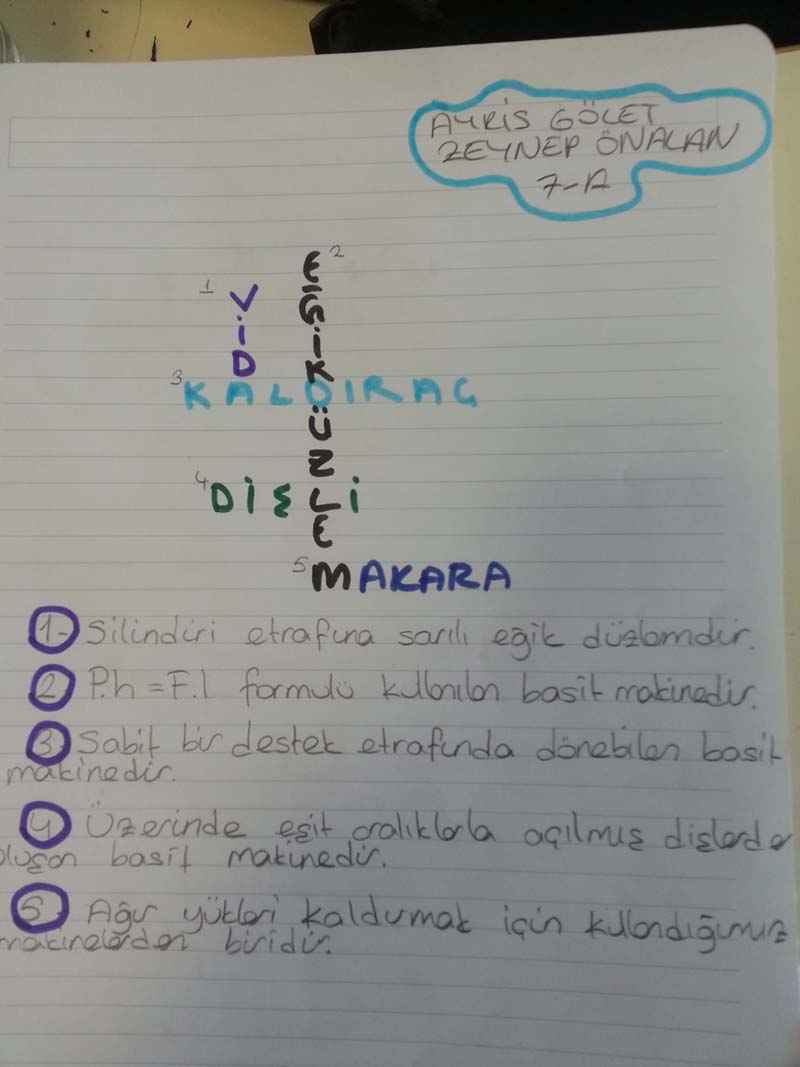 AYRİS GÖLET
ZEYNEP ÖNALAN
7-A
1 VİD
2 EĞİKDÜZLEM
3 KALDIRAÇ
4 DİŞLİ
5 MAKARA
1- Silindiri etrafına sarılı eğik düzlemdir.
2 P.h = F.l formülü kullanılan basit makinedir.
3 Sabit bir destek etrafında dönebilen basit
makinedir.
4 Üzerinde eşit aralıklarla açılmış dişlerde
oluşan basit makinedir.
5 Ağır yükleri kaldırmak için kullandığımız
makinelerden biridir.